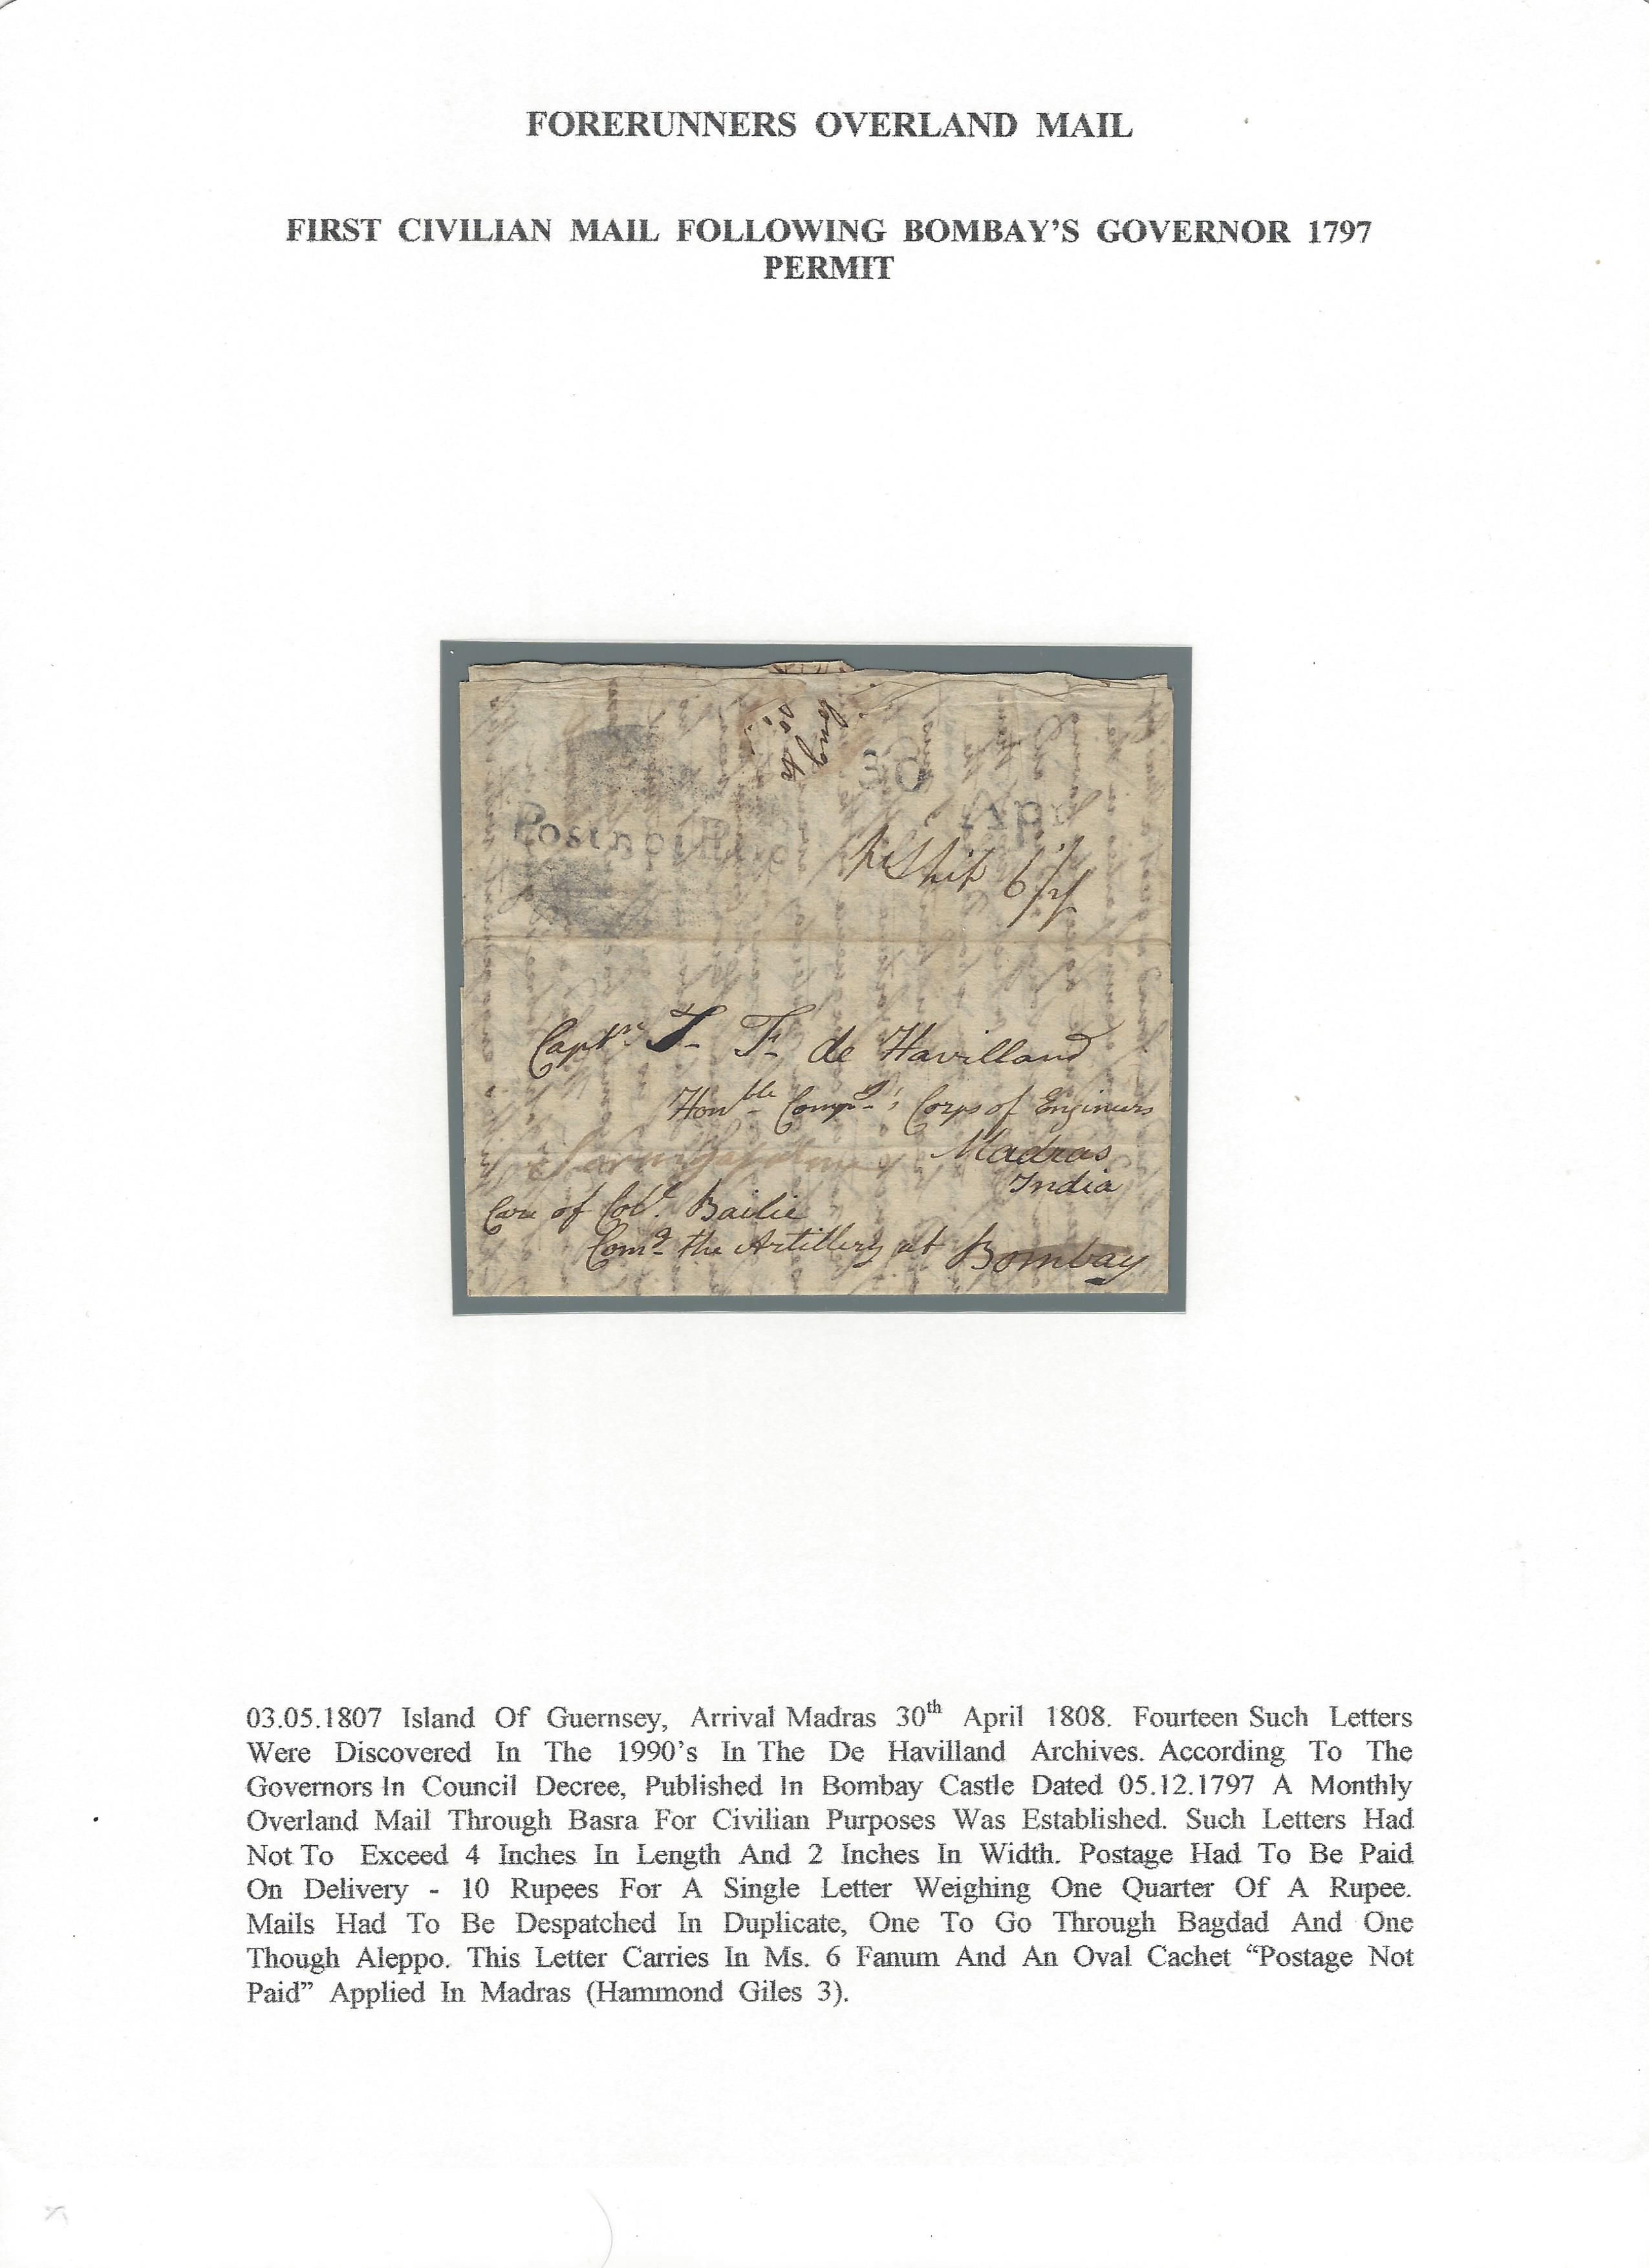 FORERUNNERS OVERLAND MAIL
FIRST CIVILIAN MAIL FOLLOWING BOMBAY'S GOVERNOR 1797
PERMIT
30
Apr
Post not Paid
Ship 6
Captn. T. F. de Havilland
Honble Compy's Corps of Engineers
Madras
India
Care of Col. Bailie
Comg the Artillery at Bombay
03.05.1807 Island Of Guernsey, Arrival Madras 30th April 1808. Fourteen Such Letters
Were Discovered In The 1990's In The De Havilland Archives. According To The
Governors In Council Decree, Published In Bombay Castle Dated 05.12.1797 A Monthly
Overland Mail Through Basra For Civilian Purposes Was Established. Such Letters Had
Not To Exceed 4 Inches In Length And 2 Inches In Width. Postage Had To Be Paid
On Delivery - 10 Rupees For A Single Letter Weighing One Quarter Of A Rupee.
Mails Had To Be Despatched In Duplicate, One To Go Through Bagdad And One
Though Aleppo. This Letter Carries In Ms. 6 Fanum And An Oval Cachet "Postage Not
Paid" Applied In Madras (Hammond Giles 3).